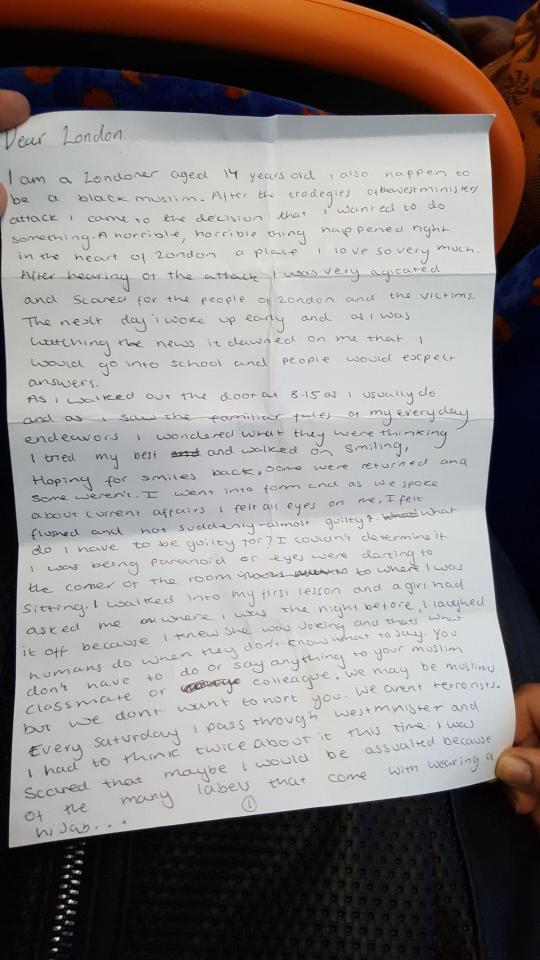 Dear London
I am a Londoner aged 14 years old i also happen to
be a black muslim. After the tradegies ofthewestministers
attack i came to the decision that i wanted to do
something. A horrible, horrible thing happened right
in the heart of London a place i love so very much.
After hearing of the attack I was very agitated
and scared for the people of London and the victims.
The next day i woke up early and as i was
watching the news it dawned on me that I
would go into school and people would expect
answers.
As I walked out the door at 8.15 as I usually do
and as I saw the familiar faces of my everyday
endeavors I wondered what they were thinking
I tried my best and and walked on smiling,
Hoping for smiles back. some were returned and
some weren't. I went into form and as we spoke
about current affairs i felt all eyes on me. I felt
flushed and hot suddenly-almost guilty?. what
do i have to be guilty for? I couldn't determine if
I was being paranoid or eyes were darting to
the corner of the room to where I was
sitting. I walked into my first lesson and a girl had
asked me where I was the night before, I laughed
it off because I knew she was joking and thats what
humans do when they don't know what to say. You
don't have to do or say anything to your muslim
classmate or colleague. we may be muslims
but we dont want to hurt you. We arent terrorists.
Every saturday i pass through westminister and
I had to think twice about it this time. I was
scared that maybe I would be assualted because
of the many labels that come with wearing a
hijab...
1